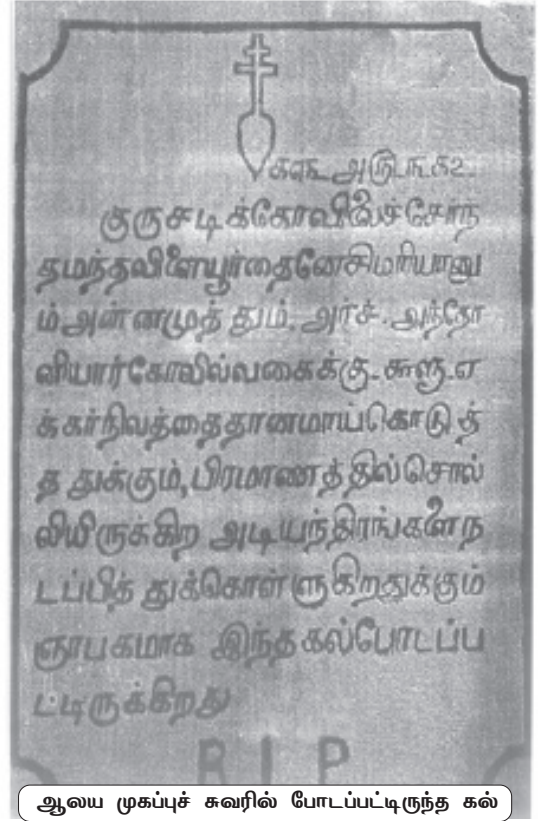 குருசடிக்கோவிலைச்சேர்ந்
தமந்தவிளையூர்தைனேசிமரியானு
ம்அன்னமுத்தும். அர்ச். அந்தோ
னியார்கோவில்வகைக்கு
க்கர்நிலத்தைதானமாய்கொடுத்
ததுக்கும், பிரமாணத்தில்சொல்
லியிருக்கிற அடியந்திரங்களைந
டப்பித்துக்கொள்ளுகிறதுக்கும்
ஞாபகமாக இந்தகல்போடப்ப
ட்டிருக்கிறது
R I P
ஆலய முகப்புச் சுவரில் போடப்பட்டிருந்த கல்